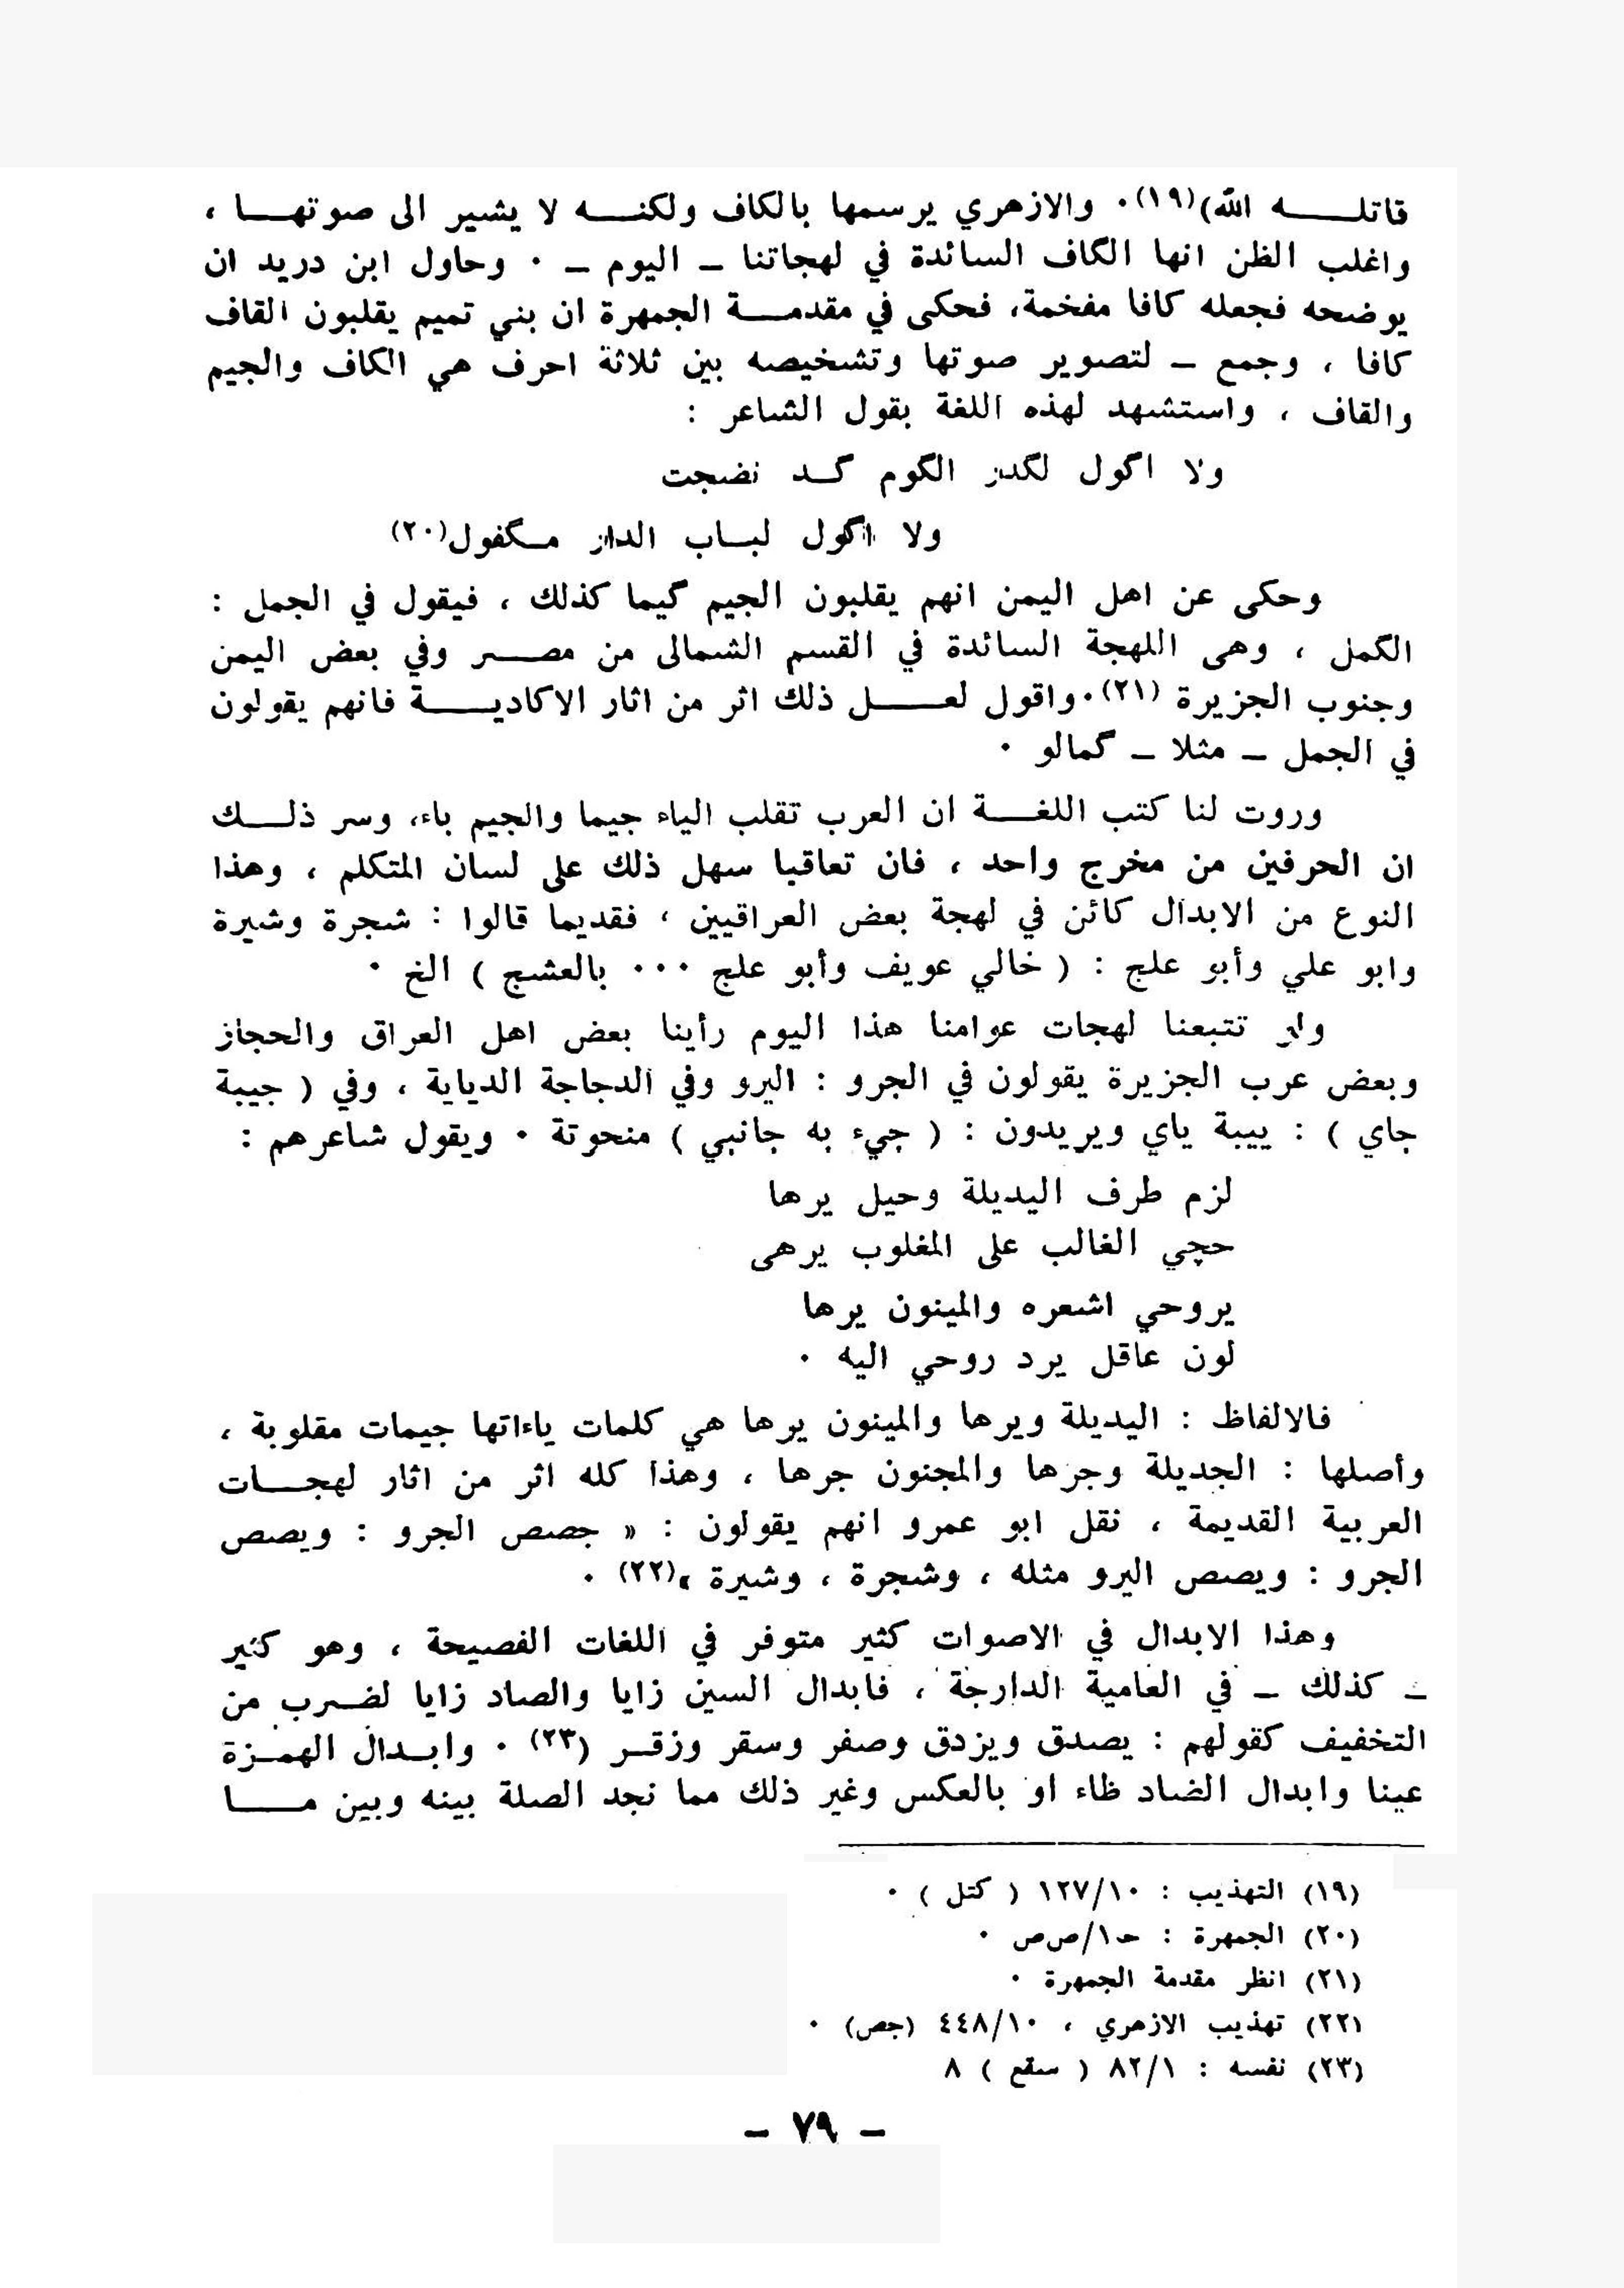 قاتلـــه الله)(١٩)٠ والازهري يرسمها بالكاف ولكنـــه لا يشير الى صوتهـــا ،
واغلب الظن انها الكاف السائدة في لهجاتنا ــ اليوم ــ ٠ وحاول ابن دريد ان
يوضحه فجعله كافا مفخمة، فحكى في مقدمـــة الجمهرة ان بني تميم يقلبون القاف
كافا ، وجمع ــ لتصوير صوتها وتشخيصه بين ثلاثة احرف هي الكاف والجيم
والقاف ، واستشهد لهذه اللغة بقول الشاعر :
ولا اكول لكدر الكوم كــد نضجت
ولا اكول لبــاب الدار مــكفول(٢٠)
وحكى عن اهل اليمن انهم يقلبون الجيم گيما كذلك ، فيقول في الجمل :
الگمل ، وهى اللهجة السائدة في القسم الشمالى من مصــر وفي بعض اليمن
وجنوب الجزيرة (٢١)٠واقول لعـــل ذلك اثر من اثار الاكاديـــة فانهم يقولون
في الجمل ــ مثلا ــ گمالو ٠
وروت لنا كتب اللغـــة ان العرب تقلب الياء جيما والجيم باء، وسر ذلــك
ان الحرفين من مخرج واحد ، فان تعاقبا سهل ذلك على لسان المتكلم ، وهذا
النوع من الابدال كائن في لهجة بعض العراقيين ، فقديما قالوا : شجرة وشيرة
وابو علي وأبو علج : ( خالي عويف وأبو علج ٠٠٠ بالعشج ) الخ ٠
ولو تتبعنا لهجات عوامنا هذا اليوم رأينا بعض اهل العراق والحجاز
وبعض عرب الجزيرة يقولون في الجرو : اليرو وفي الدجاجة الدياية ، وفي ( جيبة
جاي ) : ييبة ياي ويريدون : ( جيء به جانبي ) منحوتة ٠ ويقول شاعرهم :
لزم طرف اليديلة وحيل يرها
حچي الغالب على المغلوب يرهى
يروحي اشعره والمينون يرها
لون عاقل يرد روحي اليه ٠
فالالفاظ : اليديلة ويرها والمينون يرها هي كلمات ياءاتها جيمات مقلوبة ،
وأصلها : الجديلة وجرها والمجنون جرها ، وهذا كله اثر من اثار لهجــات
العربية القديمة ، نقل ابو عمرو انهم يقولون : « جصص الجرو : ويصص
الجرو : ويصص اليرو مثله ، وشجرة ، وشيرة »(٢٢) ٠
وهذا الابدال في الاصوات كثير متوفر في اللغات الفصيحة ، وهو كثير
ــ كذلك ــ في العامية الدارجة ، فابدال السين زايا والصاد زايا لضرب من
التخفيف كقولهم : يصدق ويزدق وصفر وسقر وزقــر (٢٣) ٠ وابــدال الهمــزة
عينا وابدال الضاد ظاء او بالعكس وغير ذلك مما نجد الصلة بينه وبين مـــا
(١٩) التهذيب : ١٢٧/١٠ ( كتل ) ٠
(٢٠) الجمهرة : حـ١/ص‌ص ٠
(٢١) انظر مقدمة الجمهرة ٠
(٢٢) تهذيب الازهري ، ٤٤٨/١٠ (جص) ٠
(٢٣) نفسه : ٨٢/١ ( سقع ) ٨
ــ ٧٩ ــ